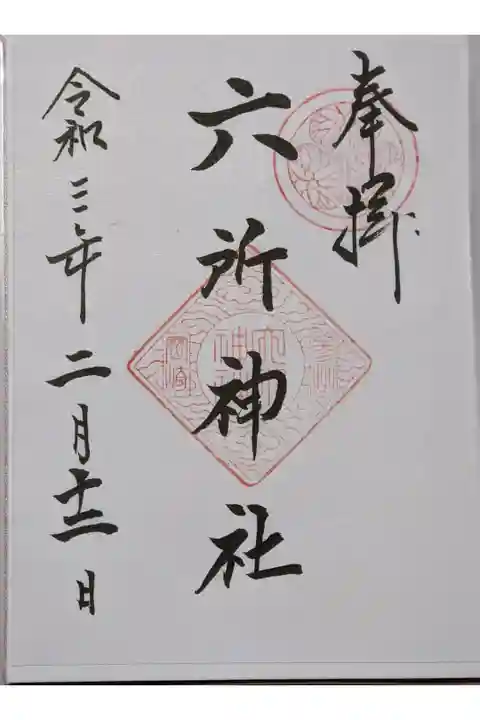 奉拝
六所神社
令和三年二月十二日